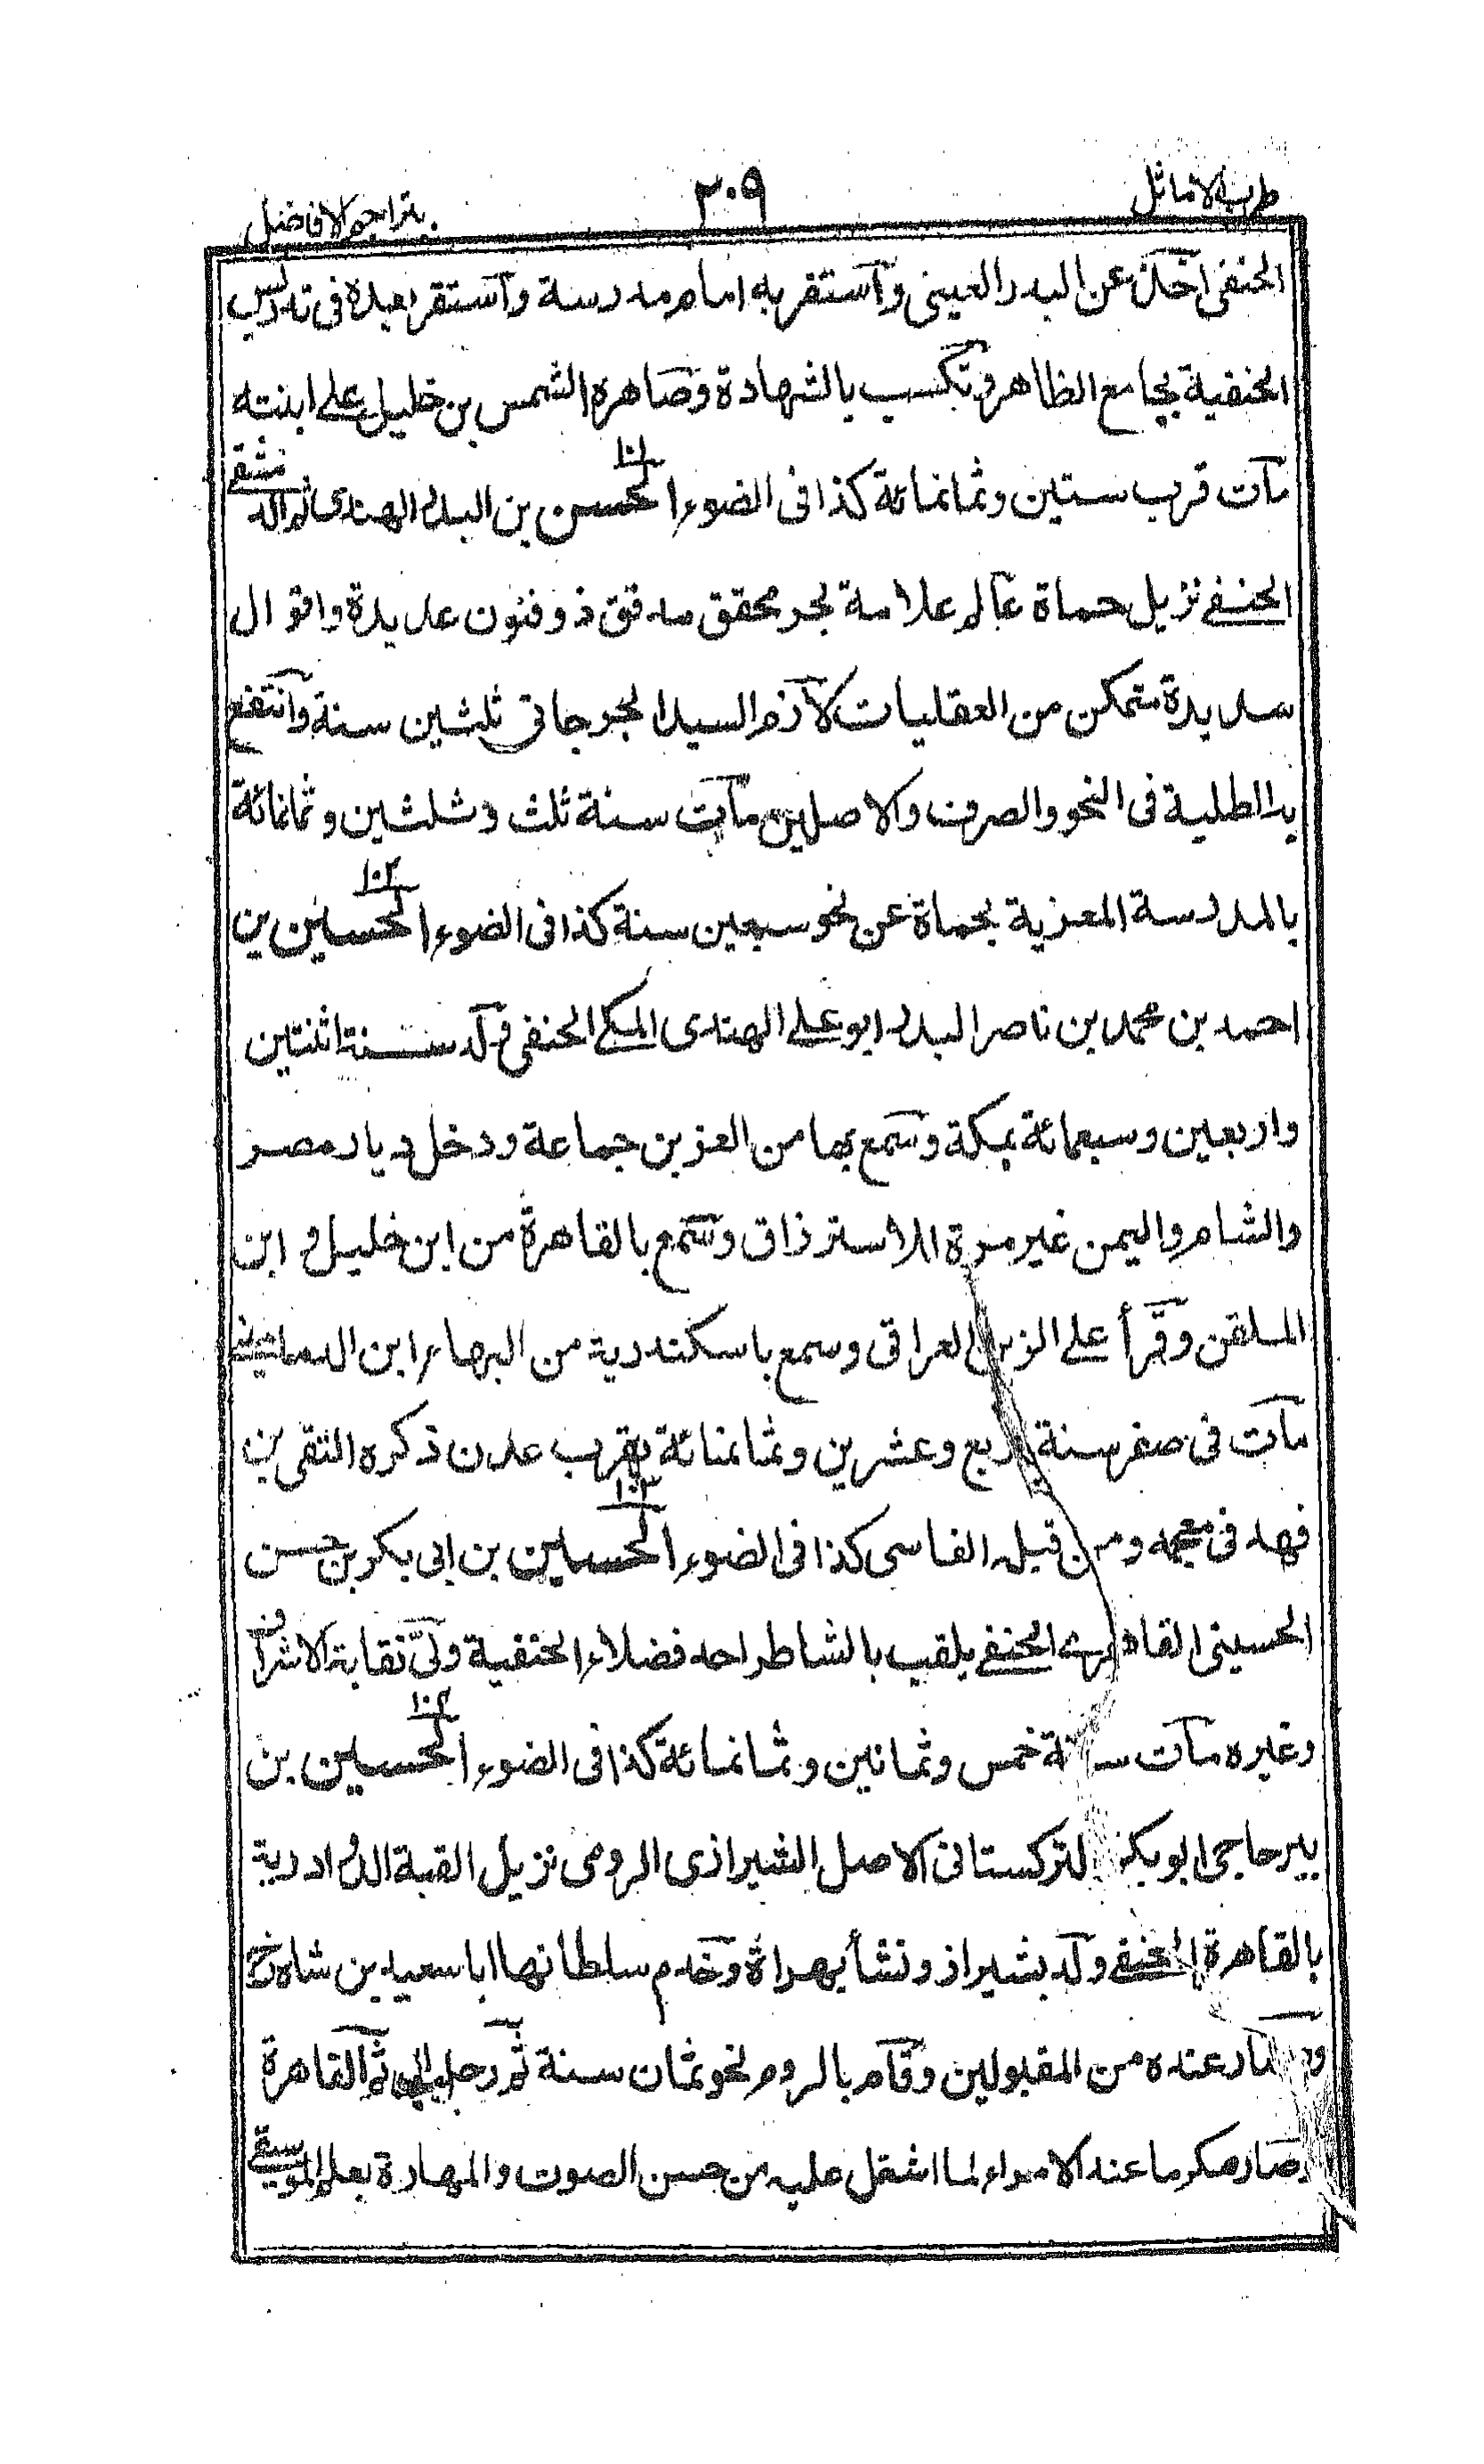 طرب الاماثل
٢٠٩
بتراجم الافاضل
الحنفى اخذ عن البدر العينى وآستقر به امام مدرسة وآستقر بعده فى تدريس
الحنفية بجامع الظاهر وتكسب بالشهادة وصاهره الشمس بن خليل على ابنته
مآت قرب ستين وثمانمائة كذا فى الضوء ١٠١ الحسن بن البدر الهندى ثم الدمشقى
الحنفے نزيل حماة عالم علامة بحر محقق مدقق ذو فنون عديدة واقوال
سديدة متمكن من العقليات لآزم السيد الجرجانى ثلثين سنة وآنتفع
به الطلبة فى النحو والصرف والاصلين مآت سنة ثلث وثلثين وثمانمائة
بالمدرسة المعزية بحماة عن نحو سبعين سنة كذا فى الضوء ١٠٢ الحسين بن
احمد بن محمد بن ناصر البدر ابو على الهندى المكى الحنفى ولد سنة اثنتين
واربعين وسبعمائة بمكة وسمع بها من العز بن جماعة ودخل ديار مصر
والشام واليمن غير مرة للاسترزاق وسمع بالقاهرة من ابن خليل و ابن
الملقن وقرأ على الزين العراقى وسمع باسكندرية من البهاء ابن الدمامينى
مآت فى صفر سنة اربع وعشرين وثمانمائة بقرب عدن ذكره التقى بن
فهد فى معجمه ومن قبله الفاسى كذا فى الضوء ١٠٣ الحسين بن ابى بكر بن حسن
الحسينى القاهرے الحنفے يلقب بالشاطر احد فضلاء الحنفية ولى نقابة الاشراف
وغيره مآت سنة خمس وثمانين وثمانمائة كذا فى الضوء ١٠٤ الحسين بن
پير حاجى ابو بكر التركستانى الاصل الشيرازى الرومى نزيل القبة الدوادرية
بالقاهرة الحنفے ولد بشيراز ونشأ بهراة وخدم سلطانها ابا سعيد بن شاه رخ
وصار عنده من المقبولين وقام بالروم نحو ثمان سنة ثم رحل الى ثم القاهرة
وصار مكرما عند الامراء لما اشتمل عليه من حسن الصوت والمهارة بعلم الموسيقى